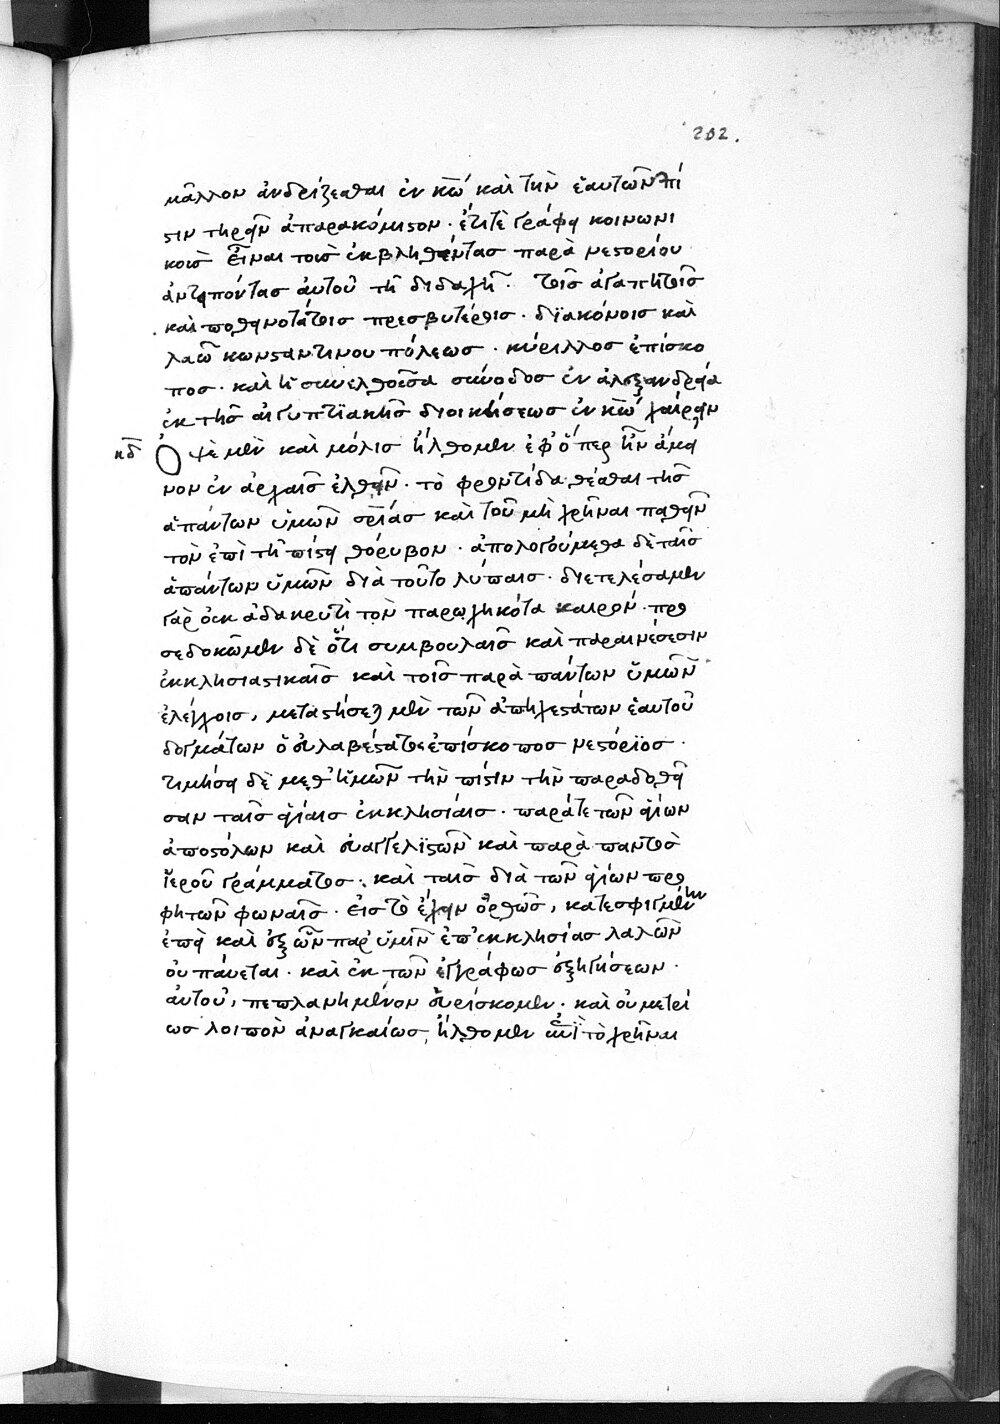 202.
μᾶλλον ἀνδρίζεσθαι ἐν κ̅ω̅ καὶ τὴν ἑαυτῶν πί
στιν τηρεῖν ἀπαρακόμιστον. ἔτι τὲ γράφει κοινωνι
κοὺς εἶναι τοὺς ἐκβληθέντας παρὰ νεστορίου
ἀντειπόντας αὐτοῦ τῇ διδαχῇ. τοῖς ἀγαπητοῖς
καὶ ποθεινοτάτοις πρεσβυτέροις. διακόνοις καὶ
λαῷ κωνσταντινουπόλεως. κύριλλος ἐπίσκο
πος. καὶ ἡ συνελθοῦσα σύνοδος ἐν ἀλεξανδρείᾳ
ἐκ τῆς αἰγυπτϊακῆς διοικήσεως ἐν κ̅ω̅ χαίρειν
κδ Ὀψὲ μὲν καὶ μόλις ἤλθομεν ἐφ' ὅπερ ἦν ἄμει
νον ἐν ἀρχαῖς ἐλθεῖν. τὸ φροντίδα θέσθαι τῆς
ἁπάντων ὑμῶν σ̅ρ̅ίας καὶ τοῦ μὴ χρῆναι παθεῖν
τὸν ἐπὶ τῇ πίστει θόρυβον. ἀπολογούμεθα δὲ ταῖς
ἁπάντων ὑμῶν διὰ τοῦτο λύπαις. διετελέσαμεν
γὰρ οὐκ ἀδακρυτὶ τὸν παρῳχηκότα καιρόν. προ
σεδοκῶμεν δὲ ὅτι συμβουλαῖς καὶ παραινέσεσιν
ἐκκλησιαστικαῖς καὶ τοῖς παρὰ πάντων ὑμῶν
ἐλέγχοις, μεταστήσεται μὲν τῶν ἀπηχεστάτων ἑαυτοῦ
δογμάτων ὁ εὐλαβέστατος ἐπίσκοπος νεστόριος.
τιμήσει δὲ μεθ' ἡμῶν τὴν πίστιν τὴν παραδοθεῖ
σαν ταῖς ἁγίαις ἐκκλησίαις. παρά τε τῶν ἁγίων
ἀποστόλων καὶ εὐαγγελιστῶν καὶ παρὰ παντὸς
ἱεροῦ γράμματος. καὶ ταῖς διὰ τῶν ἁγίων προ
φητῶν φωναῖς. εἰς τὸ ἔχειν ὀρθῶς, κατεσφιγμένην
ἐπεὶ καὶ ἐξ ὧν παρ' ὑμῖν ἐπ' ἐκκλησίας λαλῶν
οὐ παύεται. καὶ ἐκ τῶν ἐγγράφως ἐξηγήσεων.
αὐτοῦ, πεπλανημένον εὑρίσκομεν. καὶ οὐ μετρί
ως λοιπὸν ἀναγκαίως, ἤλθομεν ἐπὶ τὸ χρῆναι